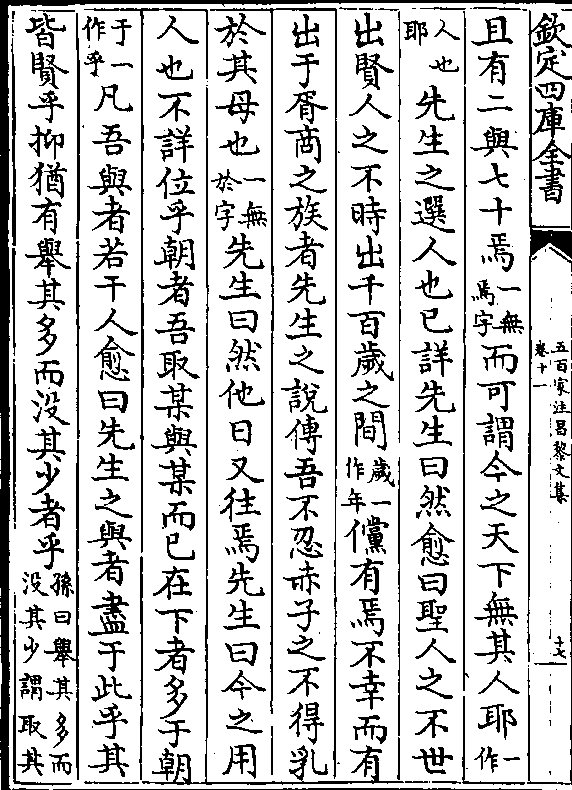 欽定四庫全書
五百家注昌黎文集
卷十一
十七
且有二與七十焉一無焉字而可謂今之天下無其人耶一作
人也耶先生之選人也已詳先生曰然愈曰聖人之不世
出賢人之不時出千百歲之間歲一作年儻有焉不幸而有
出于胥商之族者先生之說傳吾不忍赤子之不得乳
於其母也一無於字先生曰然他日又往焉先生曰今之用
人也不詳位乎朝者吾取某與某而已在下者多于朝
于一作乎凡吾與者若干人愈曰先生之與者盡于此乎其
皆賢乎抑猶有舉其多而没其少者乎孫曰舉其多而没其少謂取其